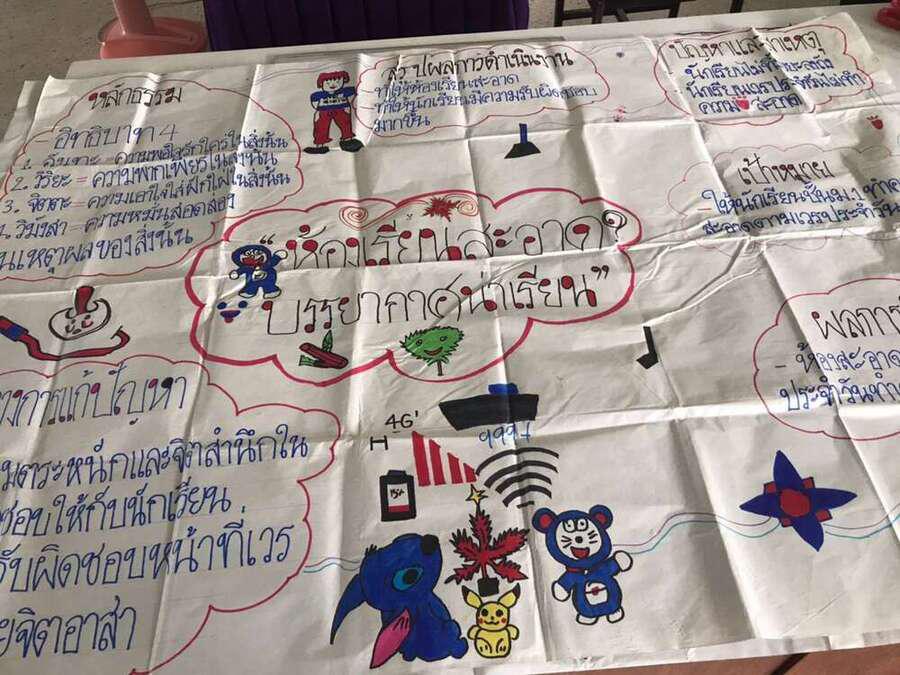 หลักธรรม
- อิทธิบาท 4
1. ฉันทะ = ความพอใจรักใคร่ในสิ่งนั้น
2. วิริยะ = ความพากเพียรในสิ่งนั้น
3. จิตตะ = ความเอาใจใส่ฝักใฝ่ในสิ่งนั้น
4. วิมังสา = ความหมั่นสอดส่อง
นเหตุผลของสิ่งนั้น
สรุปผลการดำเนินงาน
ทำให้ห้องเรียนสะอาด
ทำให้นักเรียนมีความรับผิดชอบ
มากขึ้น
ปัญหาและสาเหตุ
ความ สะอาด
เป้าหมาย
ให้นักเรียนชั้นม.1 ทำคว
สะอาดตามเวรประจำวัน
"ห้องเรียนสะอาด
บรรยากาศน่าเรียน"
ผลการ
- ห้องสะอาด
ประจำวันทำ
างการแก้ปัญหา
มตระหนักและจิตสำนึกใน
ชอบให้กับนักเรียน
รับผิดชอบหน้าที่เวร
ยจิตอาสา
4G
H